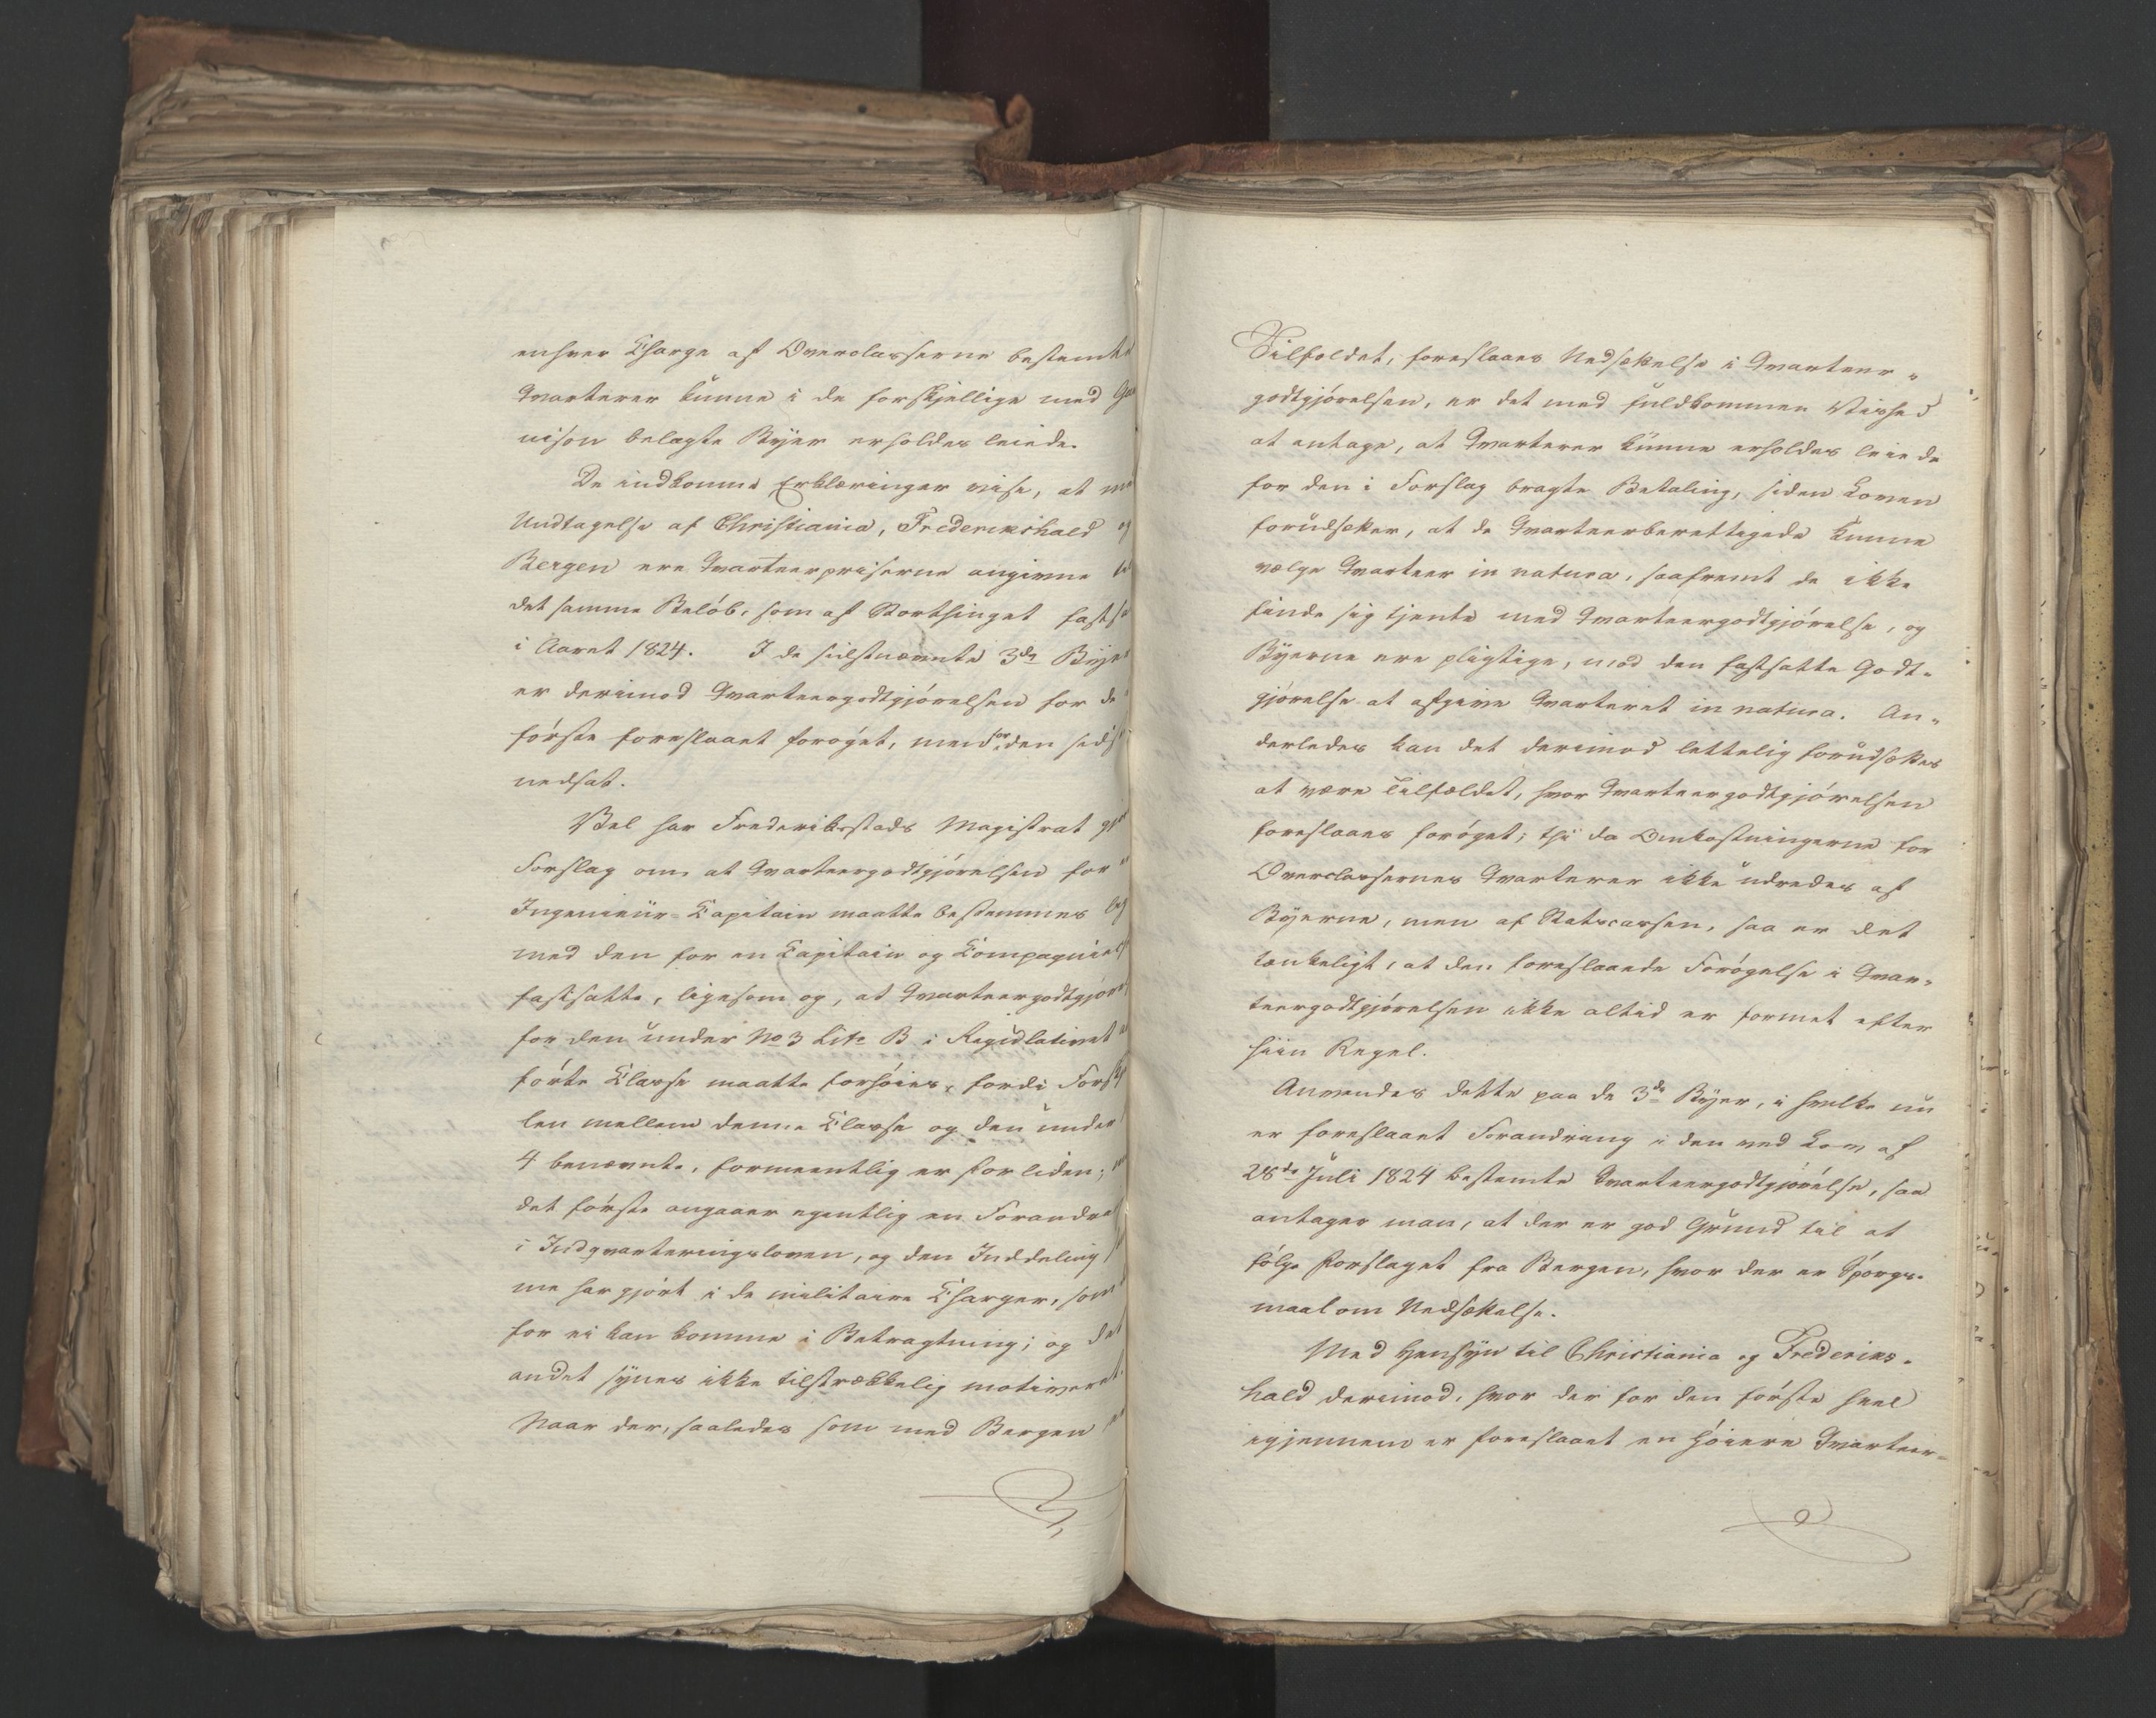 enhver Charge af Overclasserne bestemte
Qvarterer kunne i de forskjellige med Gar
nison belagte Byer erholdes leiede.
De indkomne Erklæringer vise, at med
Undtagelse af Christiania, Frederikshald og
Bergen ere Qvarteerpriserne angivne til
det samme Beløb, som af Storthinget fastsat
i Aaret 1824. I de sidstnævnte 3de Byer
er derimod Qvarteergodtgjørelsen for de
første foreslaaet forøget, men for den sidste
nedsat.
Vel har Frederiksstads Magistrat gjort
Forslag om, at Qvarteergodtgjørelsen for en
Ingenieur-Capitain maatte bestemmes lig
med den for en Capitain og Compagniechef
fastsatte, ligesom og, at Qvarteergodtgjørelsen
for den under No 3 Litr B i Regulativet an
førte Classe maatte forhøies, fordi Forskjel
len mellem denne Classe og den under
4 benævnte, formeentlig er for liden; men
det første angaaer egentlig en Forandring
i Indqvarteringsloven, og den Inddeling
me har gjort i de militaire Charger, som
for ei kan komme i Betragtning; og det
andet synes ikke tilstrækkelig motiveret.
Naar der, saaledes som med Bergen er
Tilfældet, foreslaaes Nedsættelse i Qvarteer-
godtgjørelsen, er det med fuldkommen Vished
at antage, at Qvarterer kunne erholdes leiede
for den i Forslag bragte Betaling, siden Loven
forudsætter, at de Qvarteerberettigede kunne
vælge Qvarteer in natura, saafremt de ikke
finde sig tjente med Qvarteergodtgjørelse, og
Byerne ere pligtige, mod den fastsatte Godt-
gjørelse at afgive Qvarteret in natura. An-
derledes kan det derimod lettelig forudsættes
at være Tilfældet, hvor Qvarteergodtgjørelsen
foreslaaes forøget; thi da Omkostningerne for
Overclassernes Qvarterer ikke udredes af
Byerne, men af Statscassen, saa er det
tænkeligt, at den foreslaaede Forøgelse i Qvar-
teergodtgjørelsen ikke altid er formet efter
sin Regel.
Anvendes dette paa de 3de Byer, i hvilke nu
er foreslaaet Forandring i den ved Lov af
28de Juli 1824 bestemte Qvarteergodtgjørelse, saa
antager man, at der er god Grund til at
følge Forslaget fra Bergen, hvor der er Spørgs-
maal om Nedsættelse.
Med Hensyn til Christiania og Frederiks-
hald derimod, hvor der for den første heel
igjennem er foreslaaet en høiere Qvarteer-